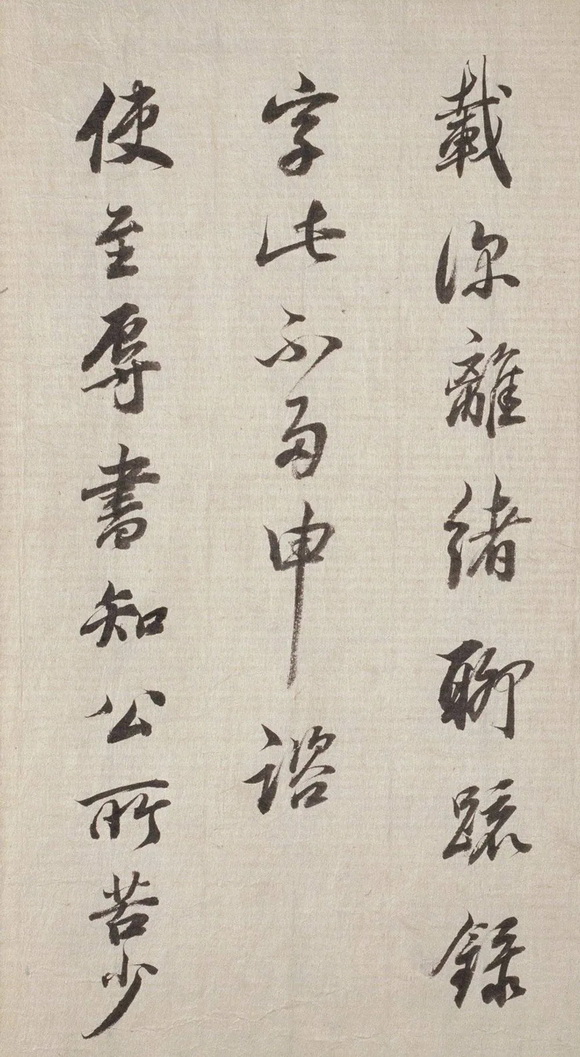 載深離緒聊䟽錄
字此不多申諮
使至辱書知公所苦少